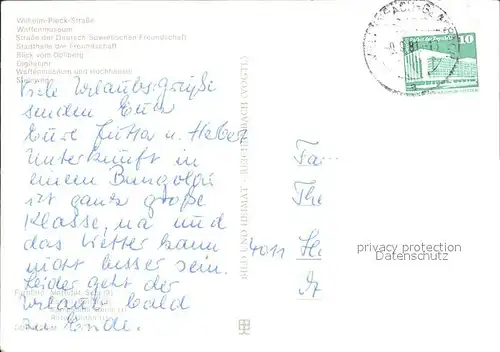 Wilhelm-Pieck-Straße
Waffenmuseum
Straße der Deutsch-Sowjetischen Freundschaft
Stadthalle der Freundschaft
Blick vom Döllberg
Digitaluhr
Waffenmuseum und Hochhäuser
Steinweg
Viele Urlaubsgrüße
senden Euch
Eure Jutta u. Hubert
Unterkunft in
einem Bungalow
ist ganz große
Klasse, na und
das Wetter kann
nicht besser sein.
Leider geht der
Urlaub bald
zu Ende.
BILD UND HEIMAT · REICHENBACH (VOGTL)
10
Fa
The
4011 Ha
privacy protection
Datenschutz